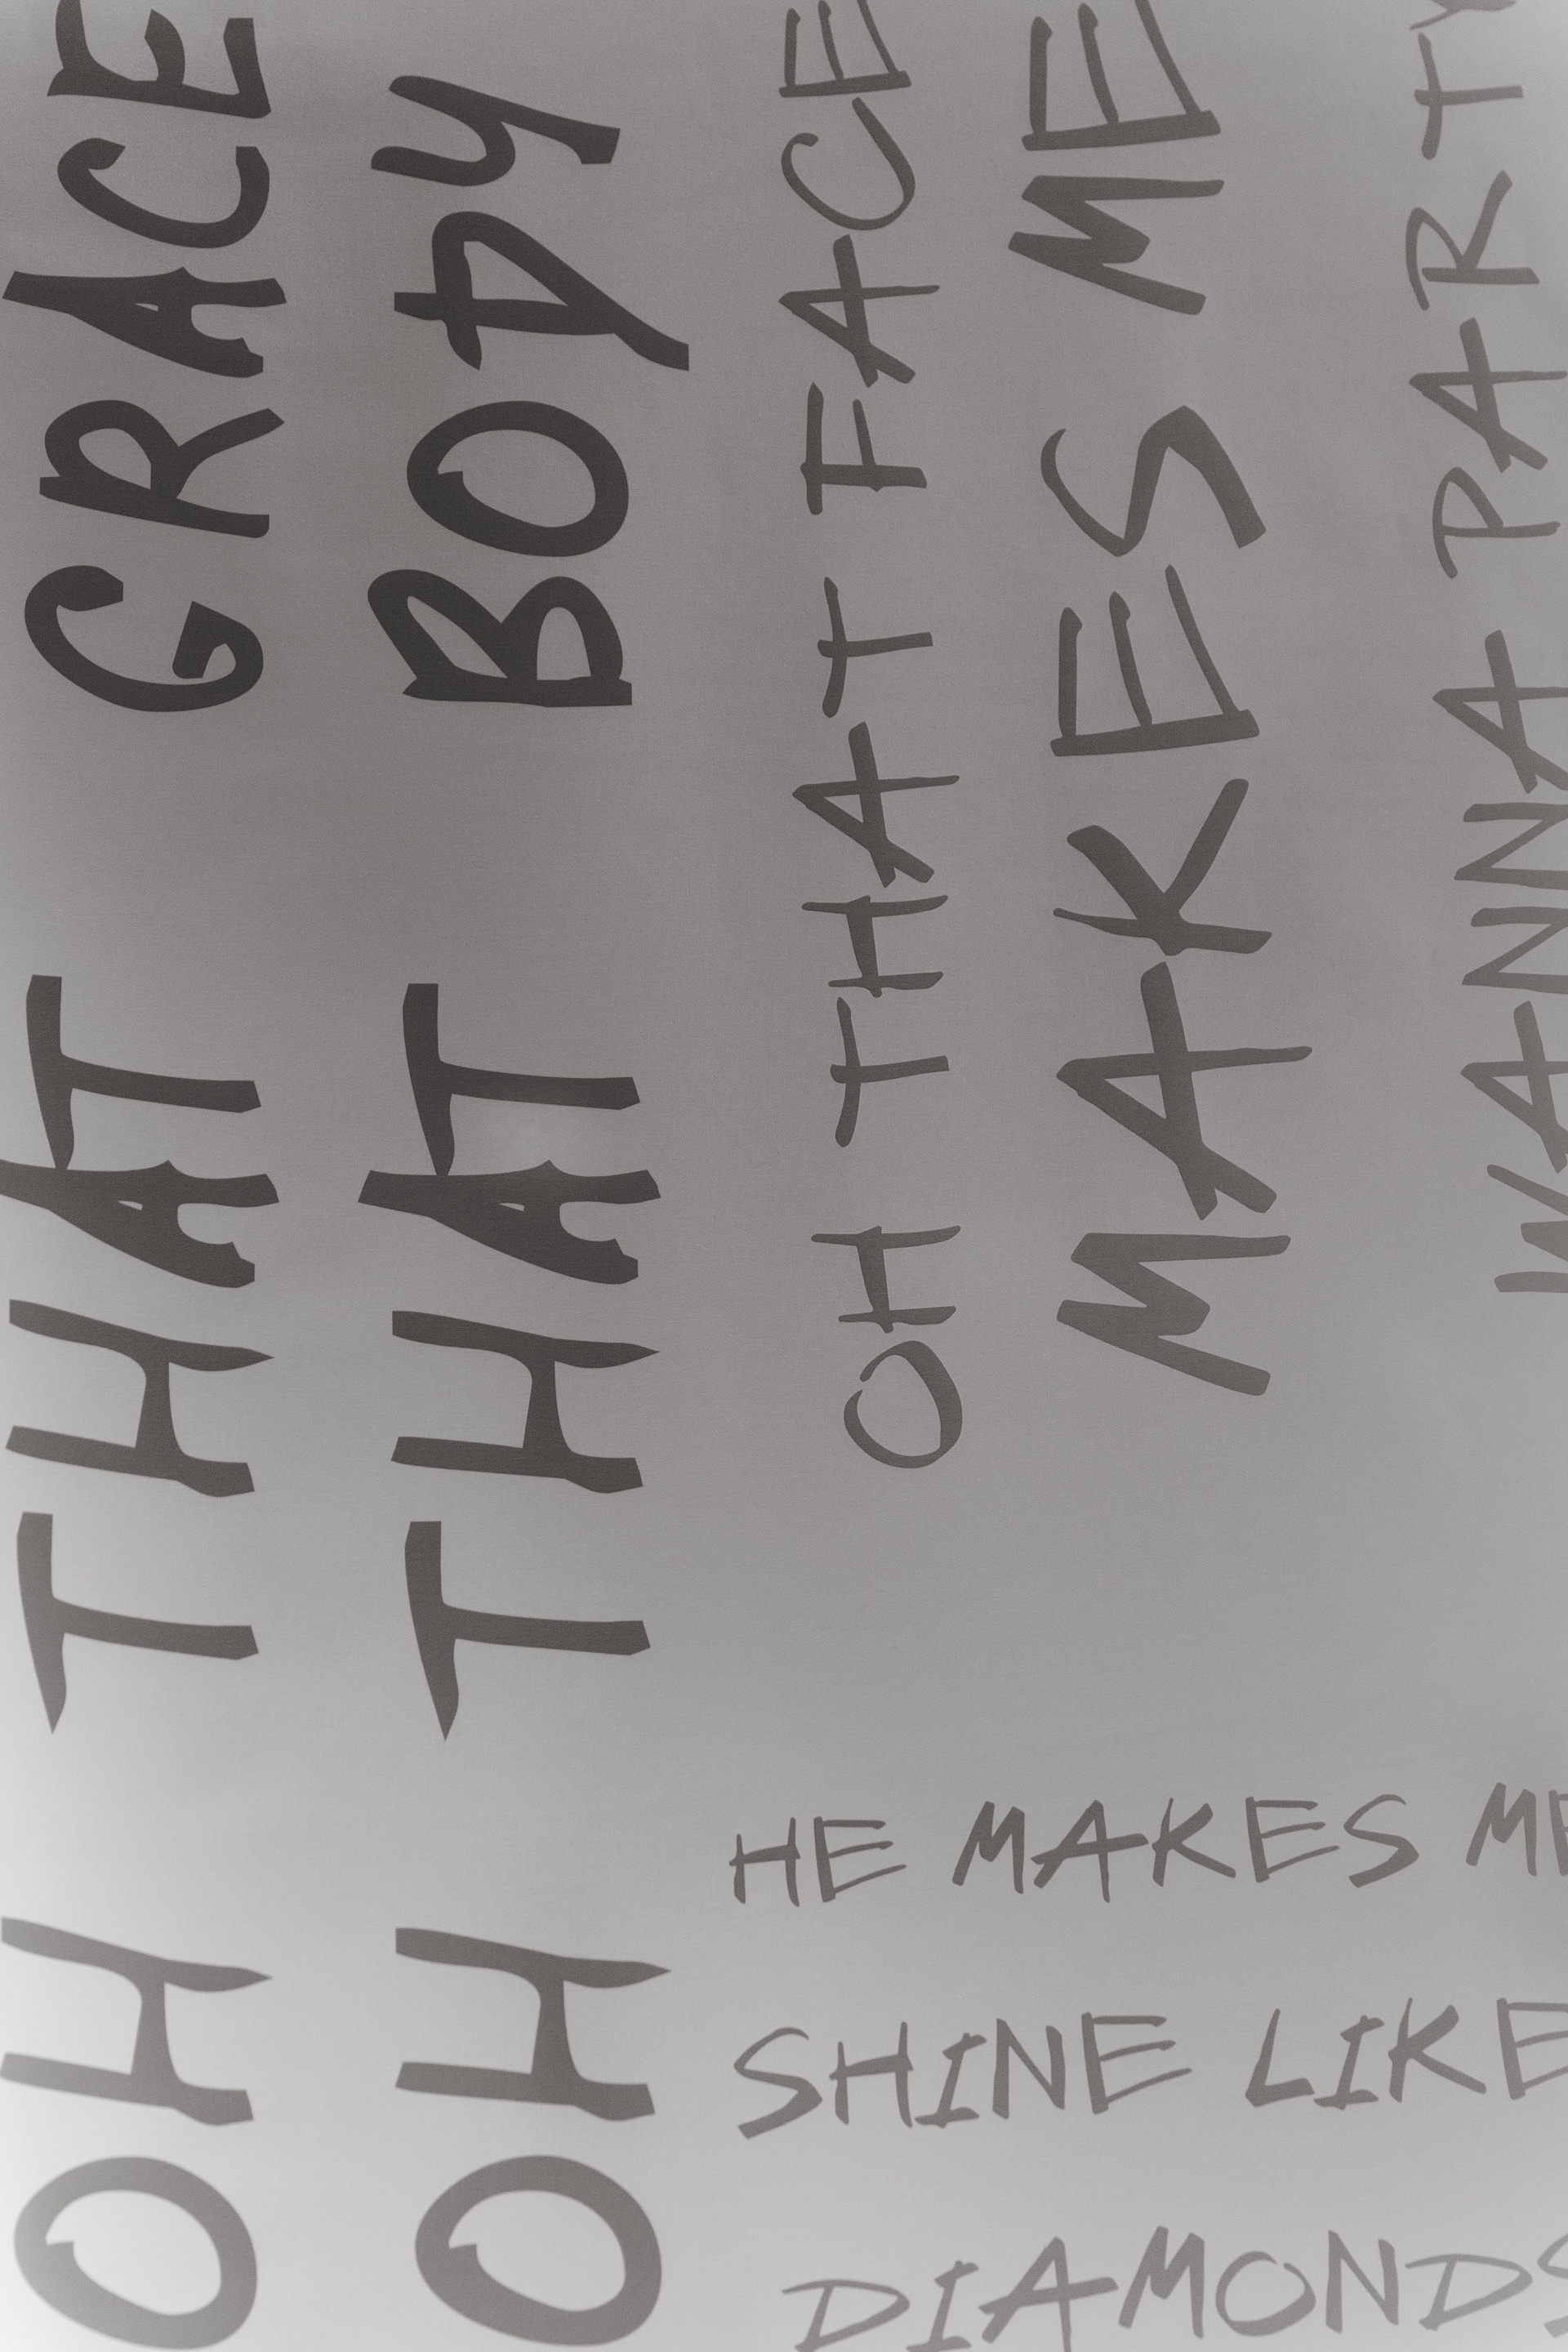 OH THAT GRACE
OH THAT BODY
OH THAT FACE
MAKES ME
WANNA PARTY
HE MAKES ME
SHINE LIKE
DIAMONDS